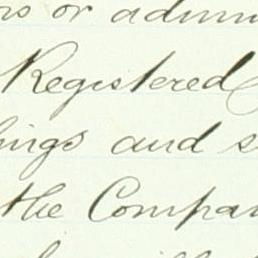 ors or admin
Registered
hings and s
the Compan